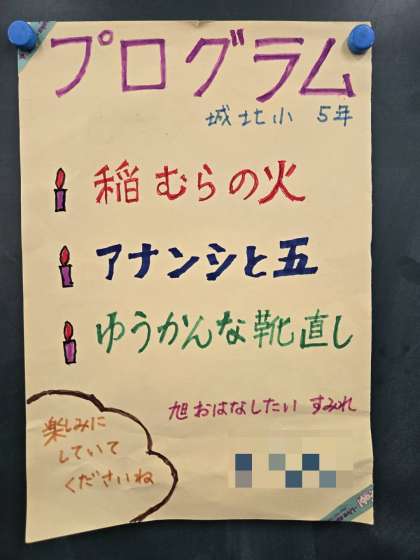 プログラム
城北小 5年
稲むらの火
アナンシと五
ゆうかんな靴直し
旭おはなしたい すみれ
楽しみに
していて
くださいね